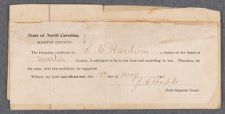 State of North Carolina,
MARTIN COUNTY.
The foregoing certificate of S. E. Hardison a Justice of the Peace of
Martin County, is adjudged to be in due form and according to law. Therefore, let
the same, with this certificate, be registered.
Witness my hand and official seal, this day of
Clerk Superior Court.